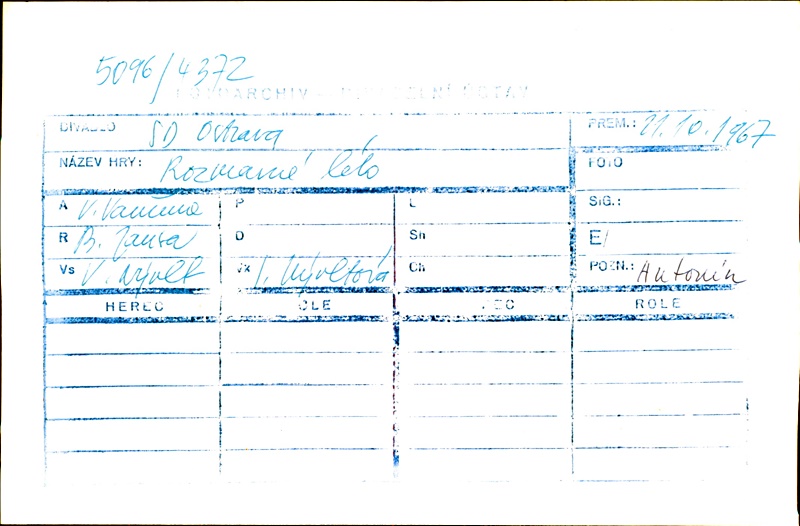 5096/4372
FOTOARCHIV - DIVADELNÍ ÚSTAV
DIVADLO SD Ostrava PREM.: 21.10.1967
NÁZEV HRY: Rozmarné léto FOTO
A V. Vančura P L SIG.:
R B. Jansa D Sh E/
Vs V. Nývlt Vk I. Nývltová Ch POZN.: Antonín
HEREC ROLE HEREC ROLE